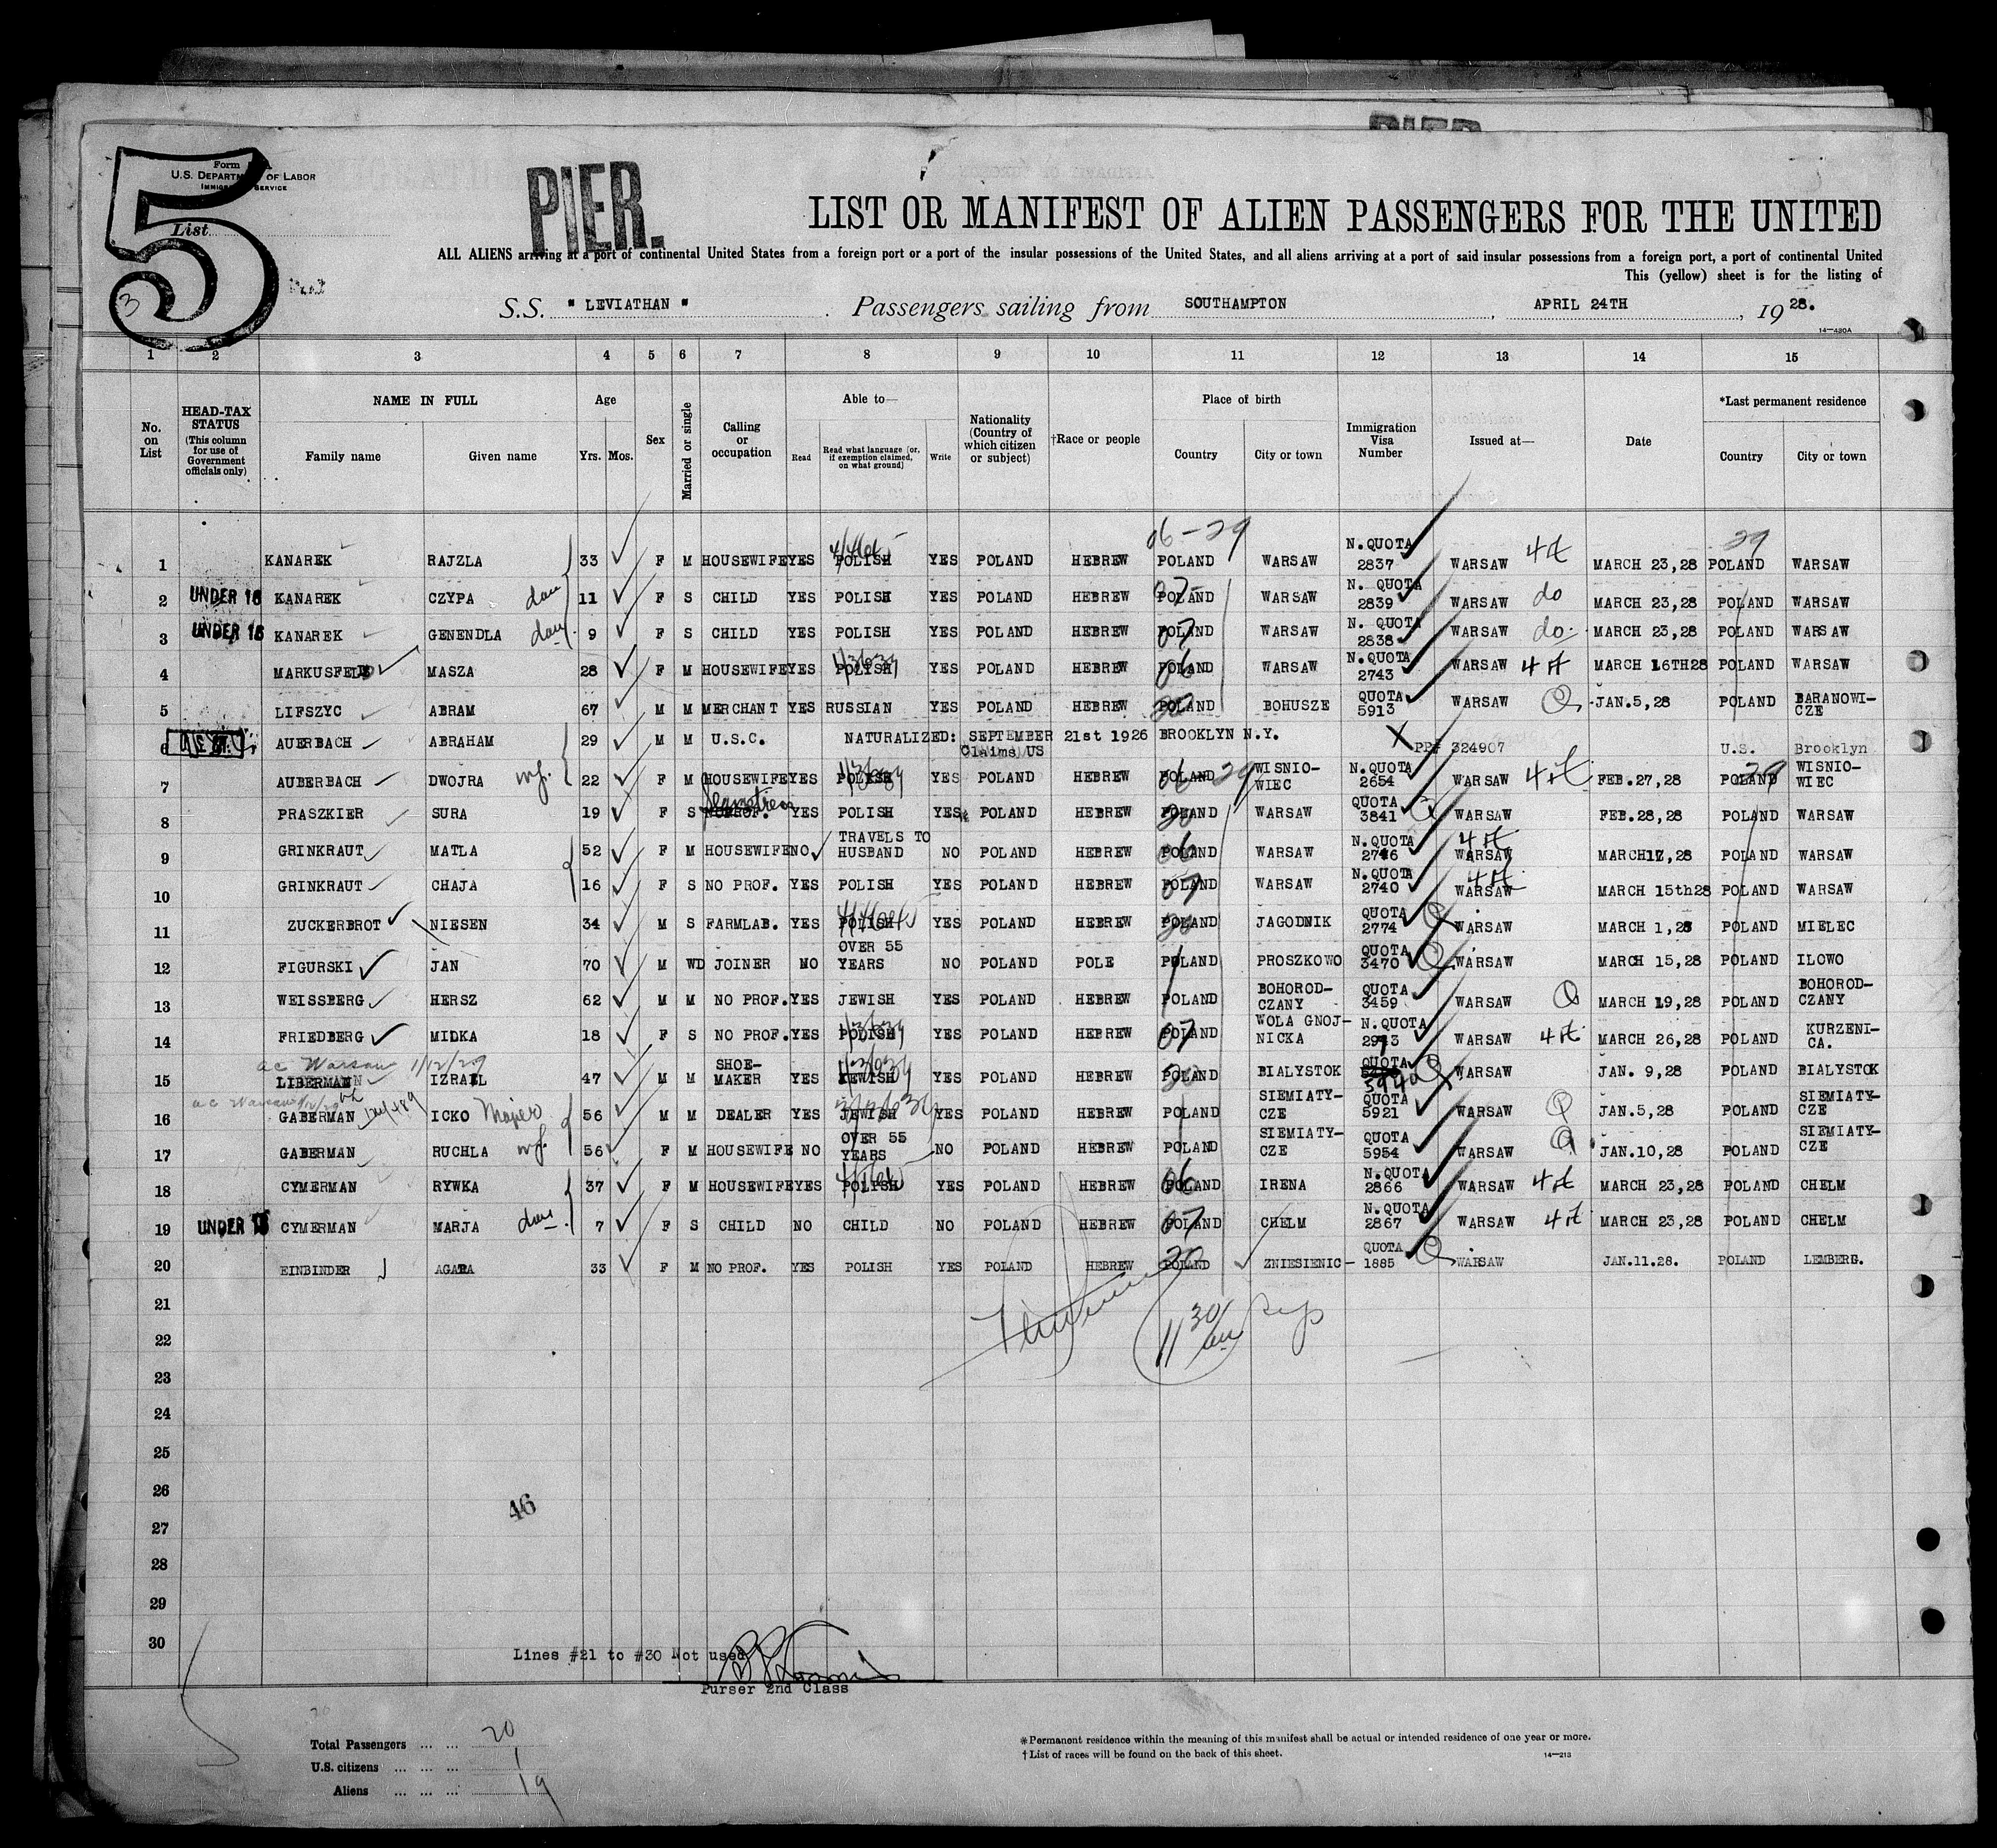 PIER
5
Form
U.S. DEPARTMENT OF LABOR
IMMIGRATION SERVICE
List
3
PIER.
LIST OR MANIFEST OF ALIEN PASSENGERS FOR THE UNITED
ALL ALIENS arriving at a port of continental United States from a foreign port or a port of the insular possessions of the United States, and all aliens arriving at a port of said insular possessions from a foreign port, a port of continental United
This (yellow) sheet is for the listing of
S.S. " LEVIATHAN " . Passengers sailing from SOUTHAMPTON , APRIL 24TH , 19 28.
14—430A
1 2 3 4 5 6 7 8 9 10 11 12 13 14 15
No. on List
HEAD-TAX STATUS (This column for use of Government officials only)
NAME IN FULL
Family name Given name
Age
Yrs. Mos.
Sex
Married or single
Calling or occupation
Able to—
Read Read what language [or, if exemption claimed, on what ground] Write
Nationality (Country of which citizen or subject)
†Race or people
Place of birth
Country City or town
Immigration Visa Number
Issued at—
Date
*Last permanent residence
Country City or town
06-29 29
1 KANAREK RAJZLA 33 F M HOUSEWIFE YES POLISH YES POLAND HEBREW POLAND WARSAW N.QUOTA 2837 WARSAW MARCH 23,28 POLAND WARSAW
2 UNDER 16 KANAREK CZYPA dau 11 F S CHILD YES POLISH YES POLAND HEBREW POLAND WARSAW N. QUOTA 2839 WARSAW do MARCH 23,28 POLAND WARSAW
3 UNDER 16 KANAREK GENENDLA dau 9 F S CHILD YES POLISH YES POLAND HEBREW 07 POLAND WARSAW N. QUOTA 2838 WARSAW do. MARCH 23,28 POLAND WARSAW
4 MARKUSFELD MASZA 28 F M HOUSEWIFE YES POLISH YES POLAND HEBREW 06 POLAND WARSAW N.QUOTA 2743 WARSAW MARCH 16TH28 POLAND WARSAW
5 LIFSZYC ABRAM 67 M M MERCHANT YES RUSSIAN YES POLAND HEBREW POLAND BOHUSZE QUOTA 5913 WARSAW Q JAN.5,28 POLAND BARANOWI-CZE
6 AUERBACH ABRAHAM 29 M M U.S.C. NATURALIZED: SEPTEMBER 21st 1926 BROOKLYN N.Y. Claims US X PP# 324907 U.S. Brooklyn
7 AUBERBACH DWOJRA wf. 22 F M HOUSEWIFE YES POLISH YES POLAND HEBREW 06 POLAND 29 WISNIO-WIEC N.QUOTA 2654 WARSAW FEB.27,28 POLAND 29 WISNIO-WIEC
8 PRASZKIER SURA 19 F S Seamstress NO PROF. YES POLISH YES POLAND HEBREW POLAND WARSAW QUOTA 3841 Q WARSAW FEB.28,28 POLAND WARSAW
9 GRINKRAUT MATLA 52 F M HOUSEWIFE NO TRAVELS TO HUSBAND NO POLAND HEBREW 06 POLAND WARSAW N.QUOTA 2746 WARSAW MARCH17,28 POLAND WARSAW
10 GRINKRAUT CHAJA 16 F S NO PROF. YES POLISH YES POLAND HEBREW 07 POLAND WARSAW N.QUOTA 2740 WARSAW MARCH 15th28 POLAND WARSAW
11 ZUCKERBROT NIESEN 34 M S FARMLAB. YES POLISH YES POLAND HEBREW POLAND JAGODNIK QUOTA 2774 Q WARSAW MARCH 1,28 POLAND MIELEC
12 FIGURSKI JAN 70 M WD JOINER NO OVER 55 YEARS NO POLAND POLE POLAND PROSZKOWO QUOTA 3470 Q WARSAW MARCH 15,28 POLAND ILOWO
13 WEISSBERG HERSZ 62 M M NO PROF. YES JEWISH YES POLAND HEBREW POLAND BOHOROD-CZANY QUOTA 3459 WARSAW Q MARCH 19,28 POLAND BOHOROD-CZANY
14 FRIEDBERG MILKA 18 F S NO PROF. YES POLISH YES POLAND HEBREW 07 POLAND WOLA GNOJ-NICKA N.QUOTA 2943 WARSAW MARCH 26,28 POLAND KURZENI-CA.
ac Warsaw 1/12/29
15 LIBERMAN IZRAEL 47 M M SHOE-MAKER YES JEWISH YES POLAND HEBREW POLAND BIALYSTOK QUOTA 5940 Q WARSAW JAN. 9,28 POLAND BIALYSTOK
16 GABERMAN ICKO Majer 56 M M DEALER YES JEWISH YES POLAND HEBREW POLAND SIEMIATY-CZE QUOTA 5921 WARSAW Q JAN.5,28 POLAND SIEMIATY-CZE
17 GABERMAN RUCHLA wf. 56 F M HOUSEWIFE NO OVER 55 YEARS NO POLAND HEBREW POLAND SIEMIATY-CZE QUOTA 5954 WARSAW Q JAN.10,28 POLAND SIEMIATY-CZE
18 CYMERMAN RYWKA 37 F M HOUSEWIFE YES POLISH YES POLAND HEBREW 06 POLAND IRENA N.QUOTA 2866 WARSAW MARCH 23,28 POLAND CHELM
19 UNDER 16 CYMERMAN MARJA dau 7 F S CHILD NO CHILD NO POLAND HEBREW 07 POLAND CHELM N.QUOTA 2867 WARSAW MARCH 23,28 POLAND CHELM
20 EINBINDER AGARA 33 F M NO PROF. YES POLISH YES POLAND HEBREW POLAND ZNIESIENIC- QUOTA 1885 Q WARSAW JAN.11.28. POLAND LEMBERG.
21
11 30 am
22
23
24
25
26
46
27
28
29
30
Lines #21 to #30 Not used
Purser 2nd Class
Total Passengers ... ... 20
U.S. citizens ... ... ... 1
Aliens ... ... ... 19
*Permanent residence within the meaning of this manifest shall be actual or intended residence of one year or more.
†List of races will be found on the back of this sheet.
14—213